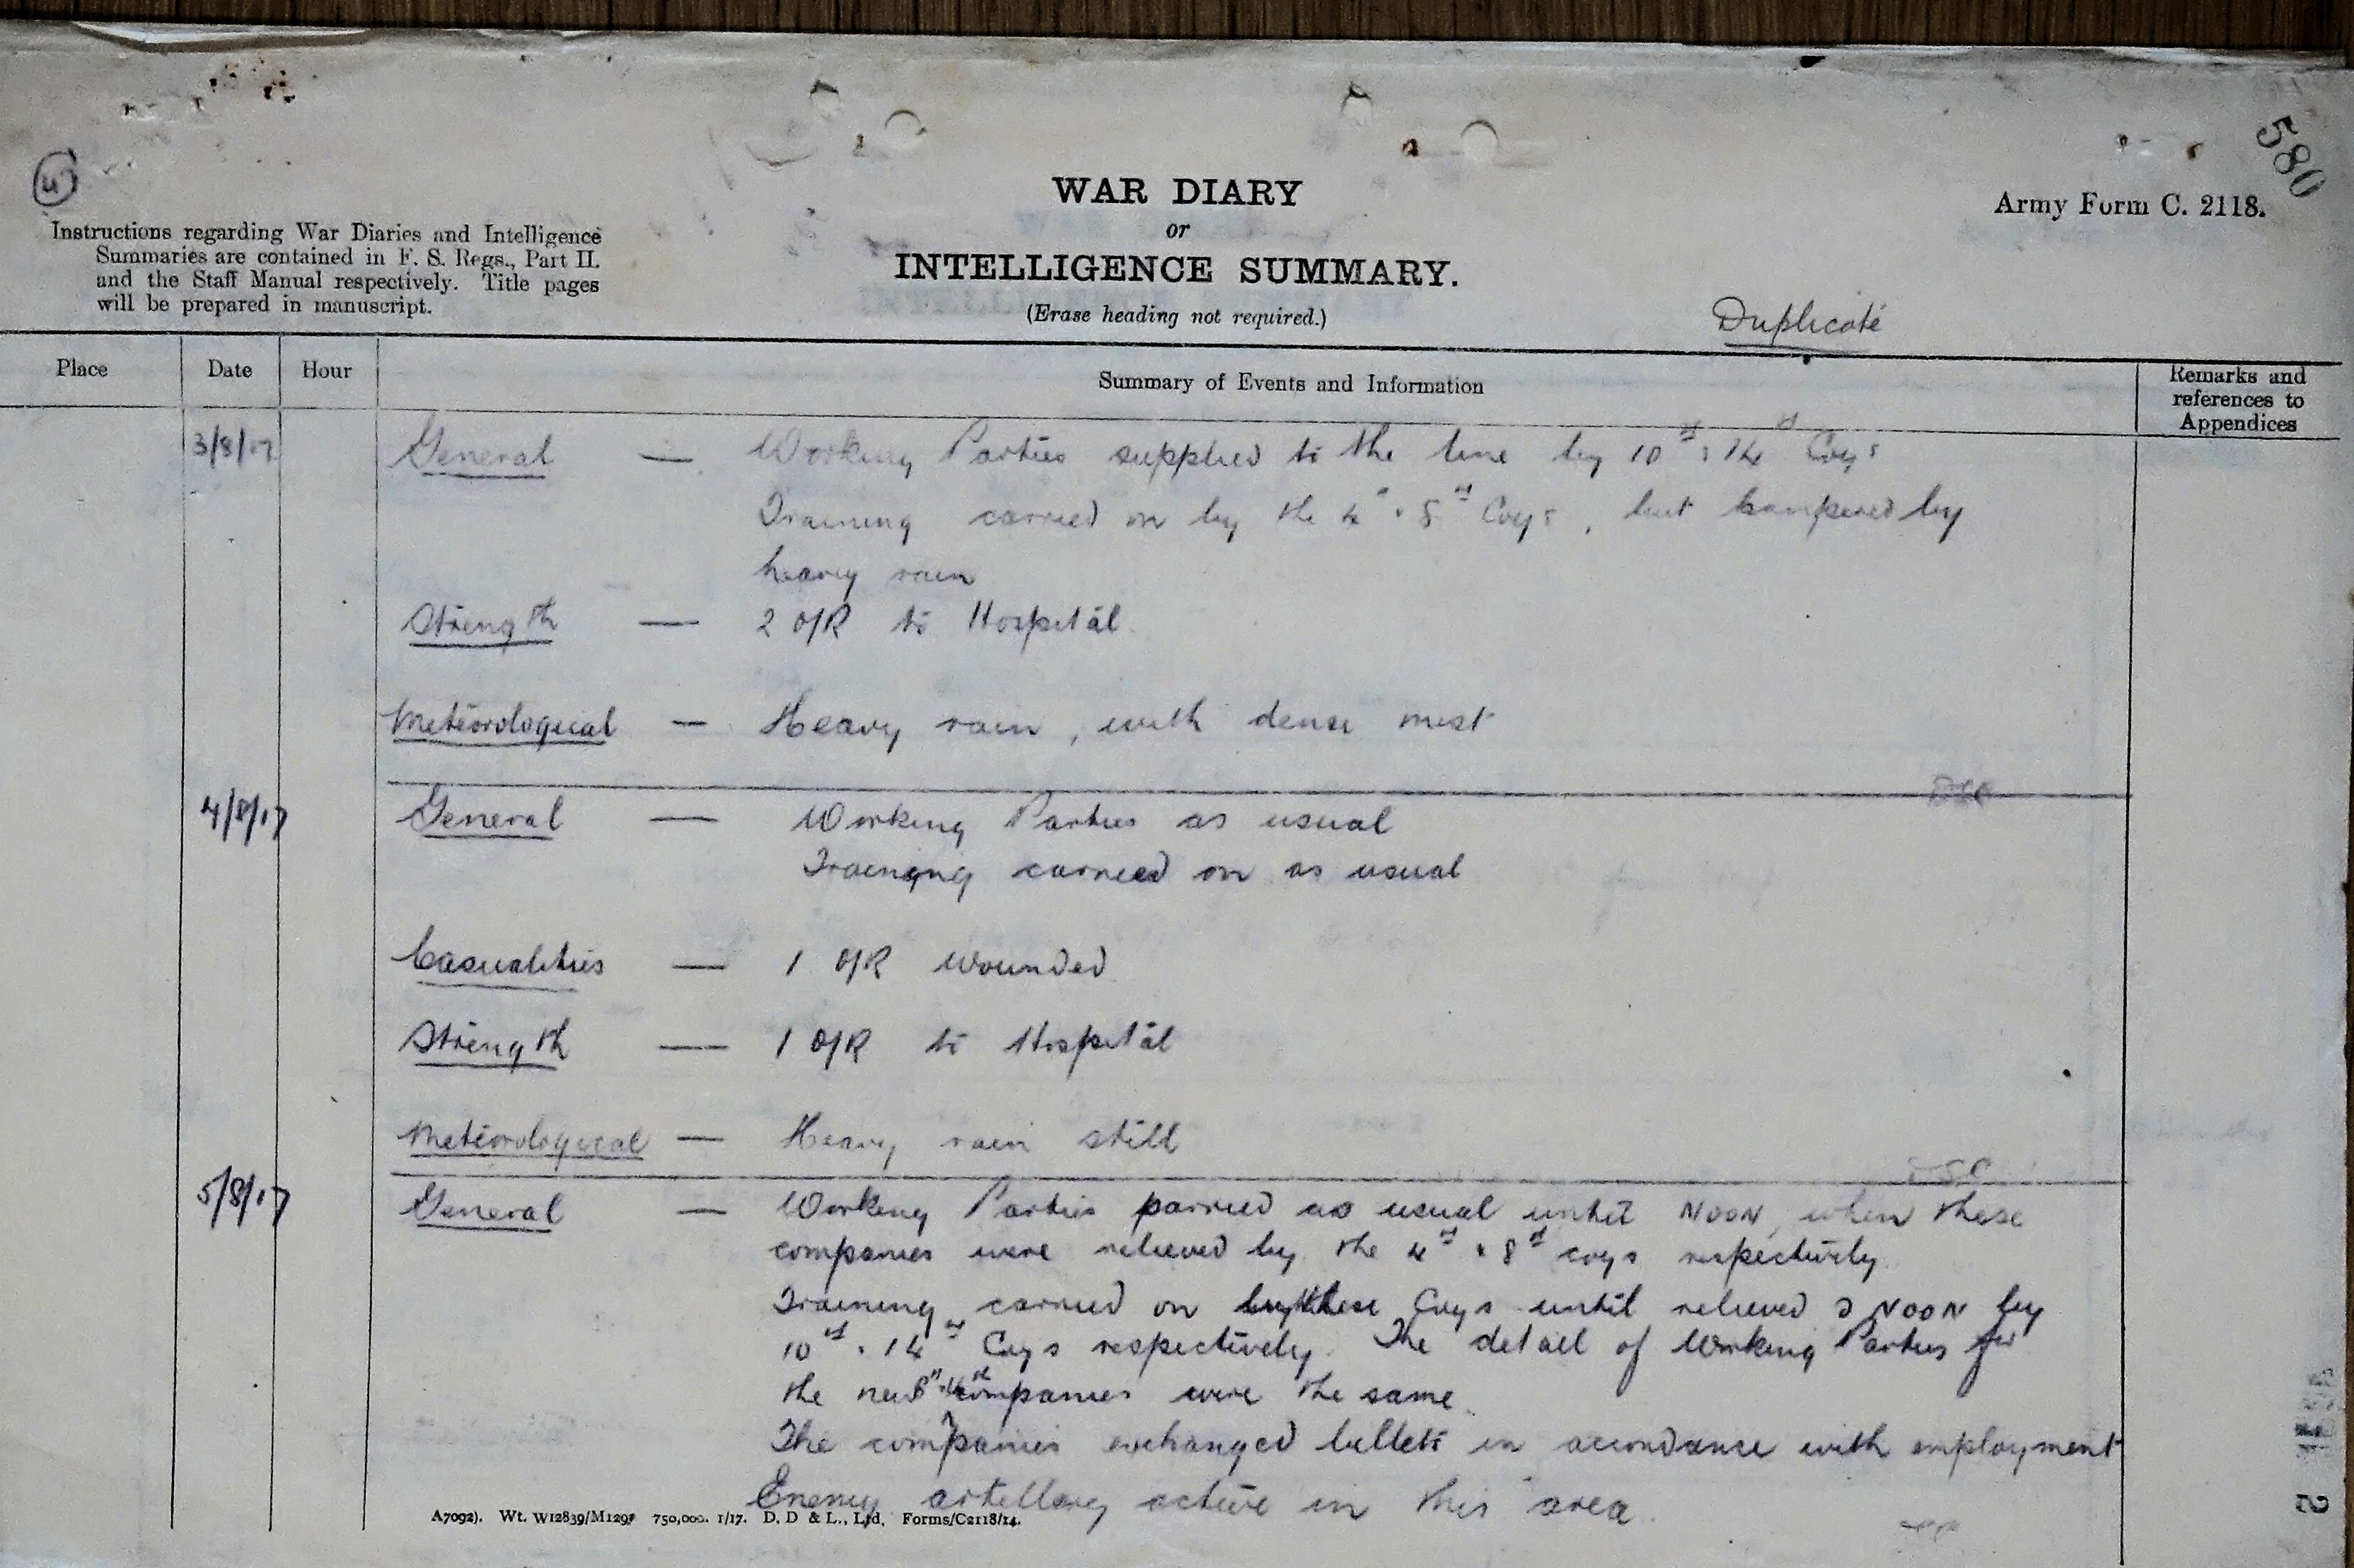 580
4
WAR DIARY
or
INTELLIGENCE SUMMARY.
(Erase heading not required.)
Army Form C. 2118.
Instructions regarding War Diaries and Intelligence
Summaries are contained in F. S. Regs., Part II.
and the Staff Manual respectively. Title pages
will be prepared in manuscript.
Duplicate
Place Date Hour Summary of Events and Information Remarks and
references to
Appendices
3/8/17 General — Working Parties supplied to the line by 10th & 14th Coys
Training carried on by the 4th & 8th Coys, but hampered by
heavy rain
Strength — 2 O/R to Hospital.
Meteorological — Heavy rain, with dense mist
4/8/17 General — Working Parties as usual
Training carried on as usual
Casualities — 1 O/R wounded.
Strength — 1 O/R to Hospital
Meteorological — Heavy rain still
5/8/17 General — Working Parties as usual until NOON, when these
companies were relieved by the 4th & 8th coys respectively.
Training carried on by these Coys until relieved NOON by
10th & 14th Coys respectively. The detail of Working Parties for
the companies were the same.
The companies exchanged billets in accordance with employment
Enemy artillery active in this area.
A7092). Wt. W12839/M1297 750,000. 1/17. D. D & L., Ltd. Forms/C2118/14.